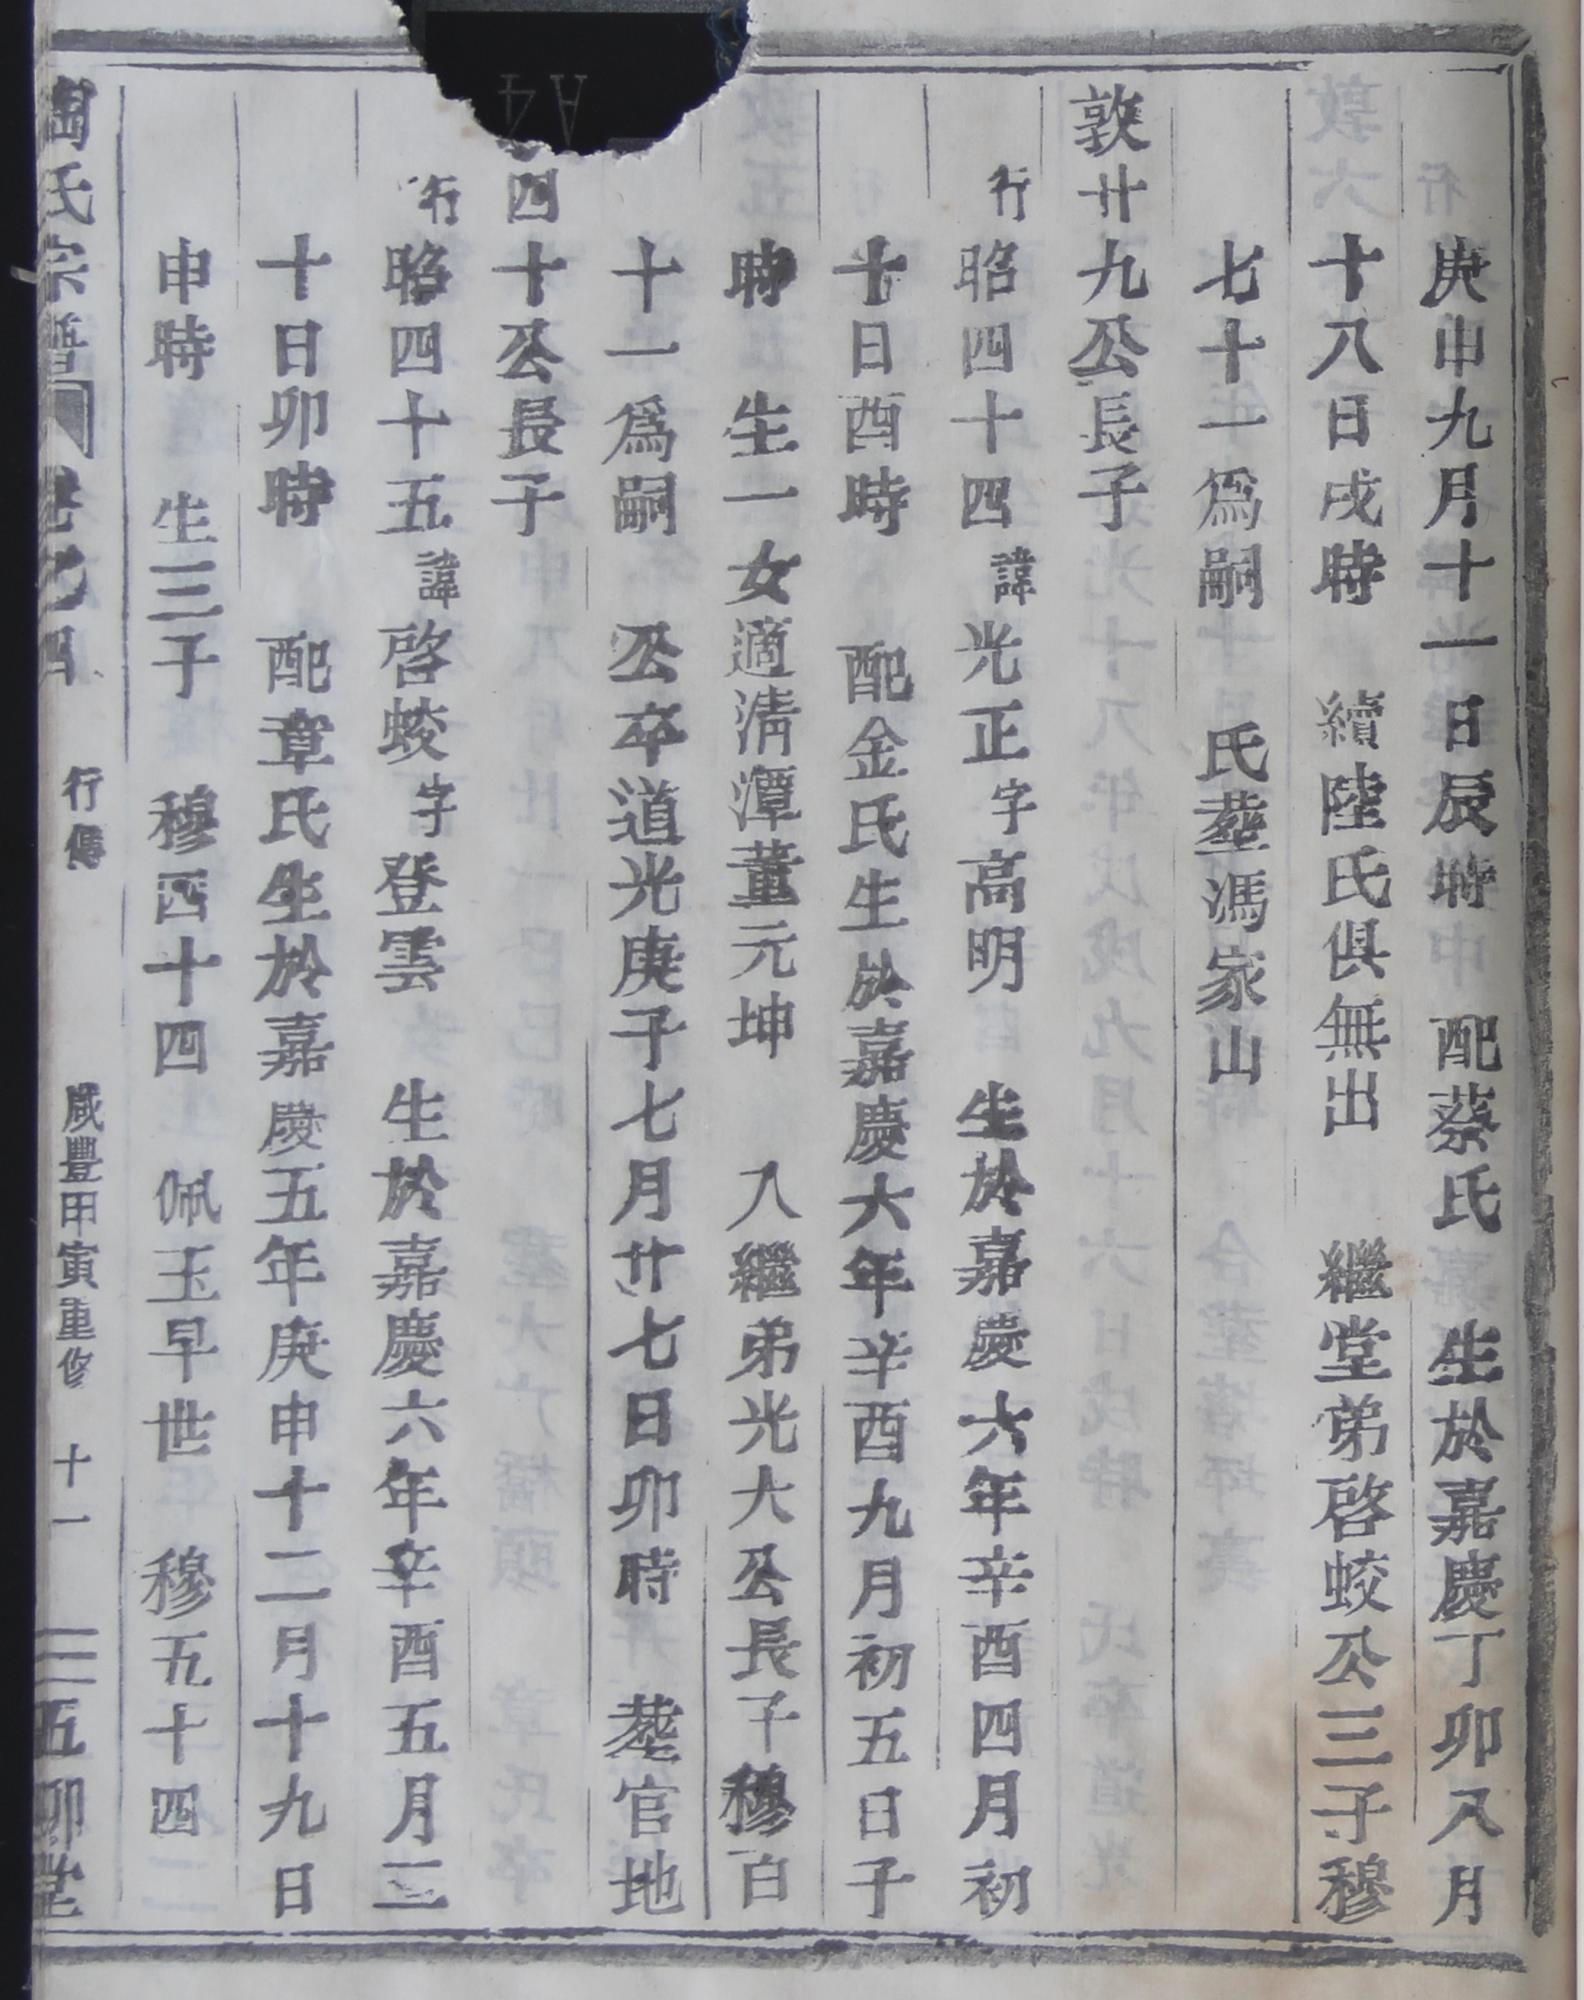 庚申九月十一日辰時 配蔡氏 生於嘉慶丁卯八月
十八日戌時 續陸氏俱無出 繼堂弟啓蛟公三子穆
七十一爲嗣 氏塟馮家山
敦廿九公長子
行昭四十四諱光正字高明 生於嘉慶六年辛酉四月初
十日酉時 配金氏生於嘉慶六年辛酉九月初五日子
時 生一女適淸潭董元坤 入繼弟光大公長子穆百
十一爲嗣 公卒道光庚子七月廿七日卯時 塟官地
四十公長子
行昭四十五諱啓蛟字登雲 生於嘉慶六年辛酉五月三
十日卯時 配章氏生於嘉慶五年庚申十二月十九日
申時 生三子 穆四十四 佩玉早世 穆五十四
陶氏宗譜 卷之四 行傳 咸豐甲寅重修 十一 五柳堂